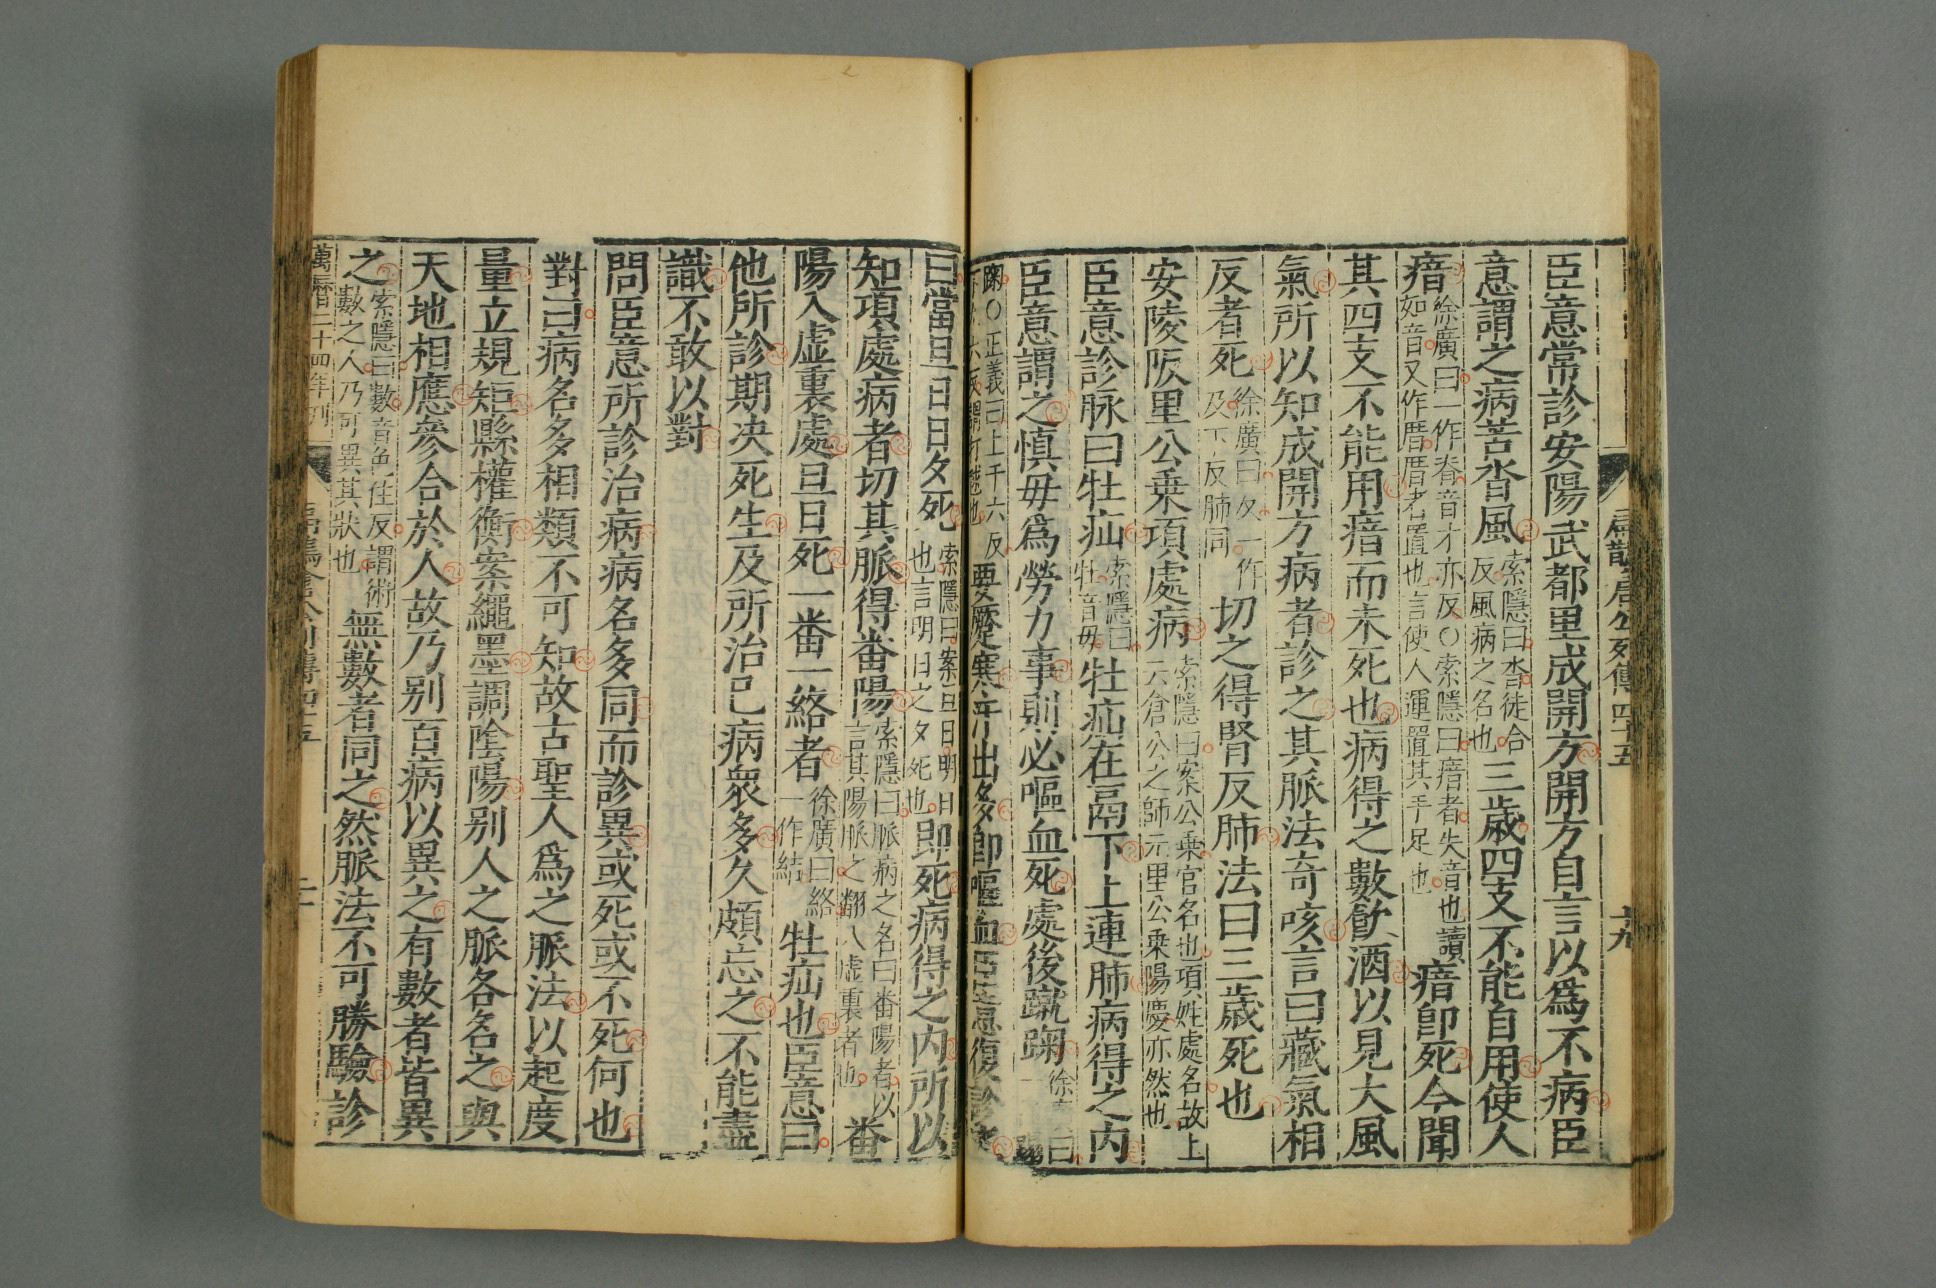 臣意常診安陽武都里成開方開方自言以為不病臣
意謂之病苦沓風索隱曰沓徒合反風病之名也三歲四支不能自用使人
瘖徐廣曰一作脊音才亦反○索隱曰瘖者失音也讀如音又作厝厝者置也言使人運置其手足也瘖即死今聞
其四支不能用瘖而未死也病得之數飲酒以見大風
氣所以知成開方病者診之其脈法奇咳言曰藏氣相
反者死徐廣曰反一作及下反肺同切之得腎反肺法曰三歲死也
安陵阪里公乗項處病索隱曰案公乗官名也項姓處名故上云倉公之師元里公乗陽慶亦然也
臣意診脉曰牡疝索隱曰牡音母牡疝在鬲下上連肺病得之内
臣意謂之慎毋為勞力事則必嘔血死處後蹴踘徐廣曰一
踘○正義曰上千六反
要蹷寒汗出多即嘔血臣意復診之
曰當旦日日夕死索隱曰案旦日明日也言明日之夕死也即死病得之内所以
知項處病者切其脈得番陽索隱曰脈病之名曰番陽者以言其陽脈之翻入虚裏者也番
陽入虚裏處旦日死一番一絡者徐廣曰絡一作結牡疝也臣意曰
他所診期决死生及所治已病衆多久頗忘之不能盡
識不敢以對
問臣意所診治病病名多同而診異或死或不死何也
對曰病名多相類不可知故古聖人為之脈法以起度
量立規矩縣權衡案繩墨調陰陽别人之脈各名之與
天地相應參合於人故乃别百病以異之有數者皆異
之索隱曰數音色住反謂術數之人乃可異其狀也無數者同之然脈法不可勝驗診
萬曆二十四年刊
扁鵲倉公列傳四十五
二十